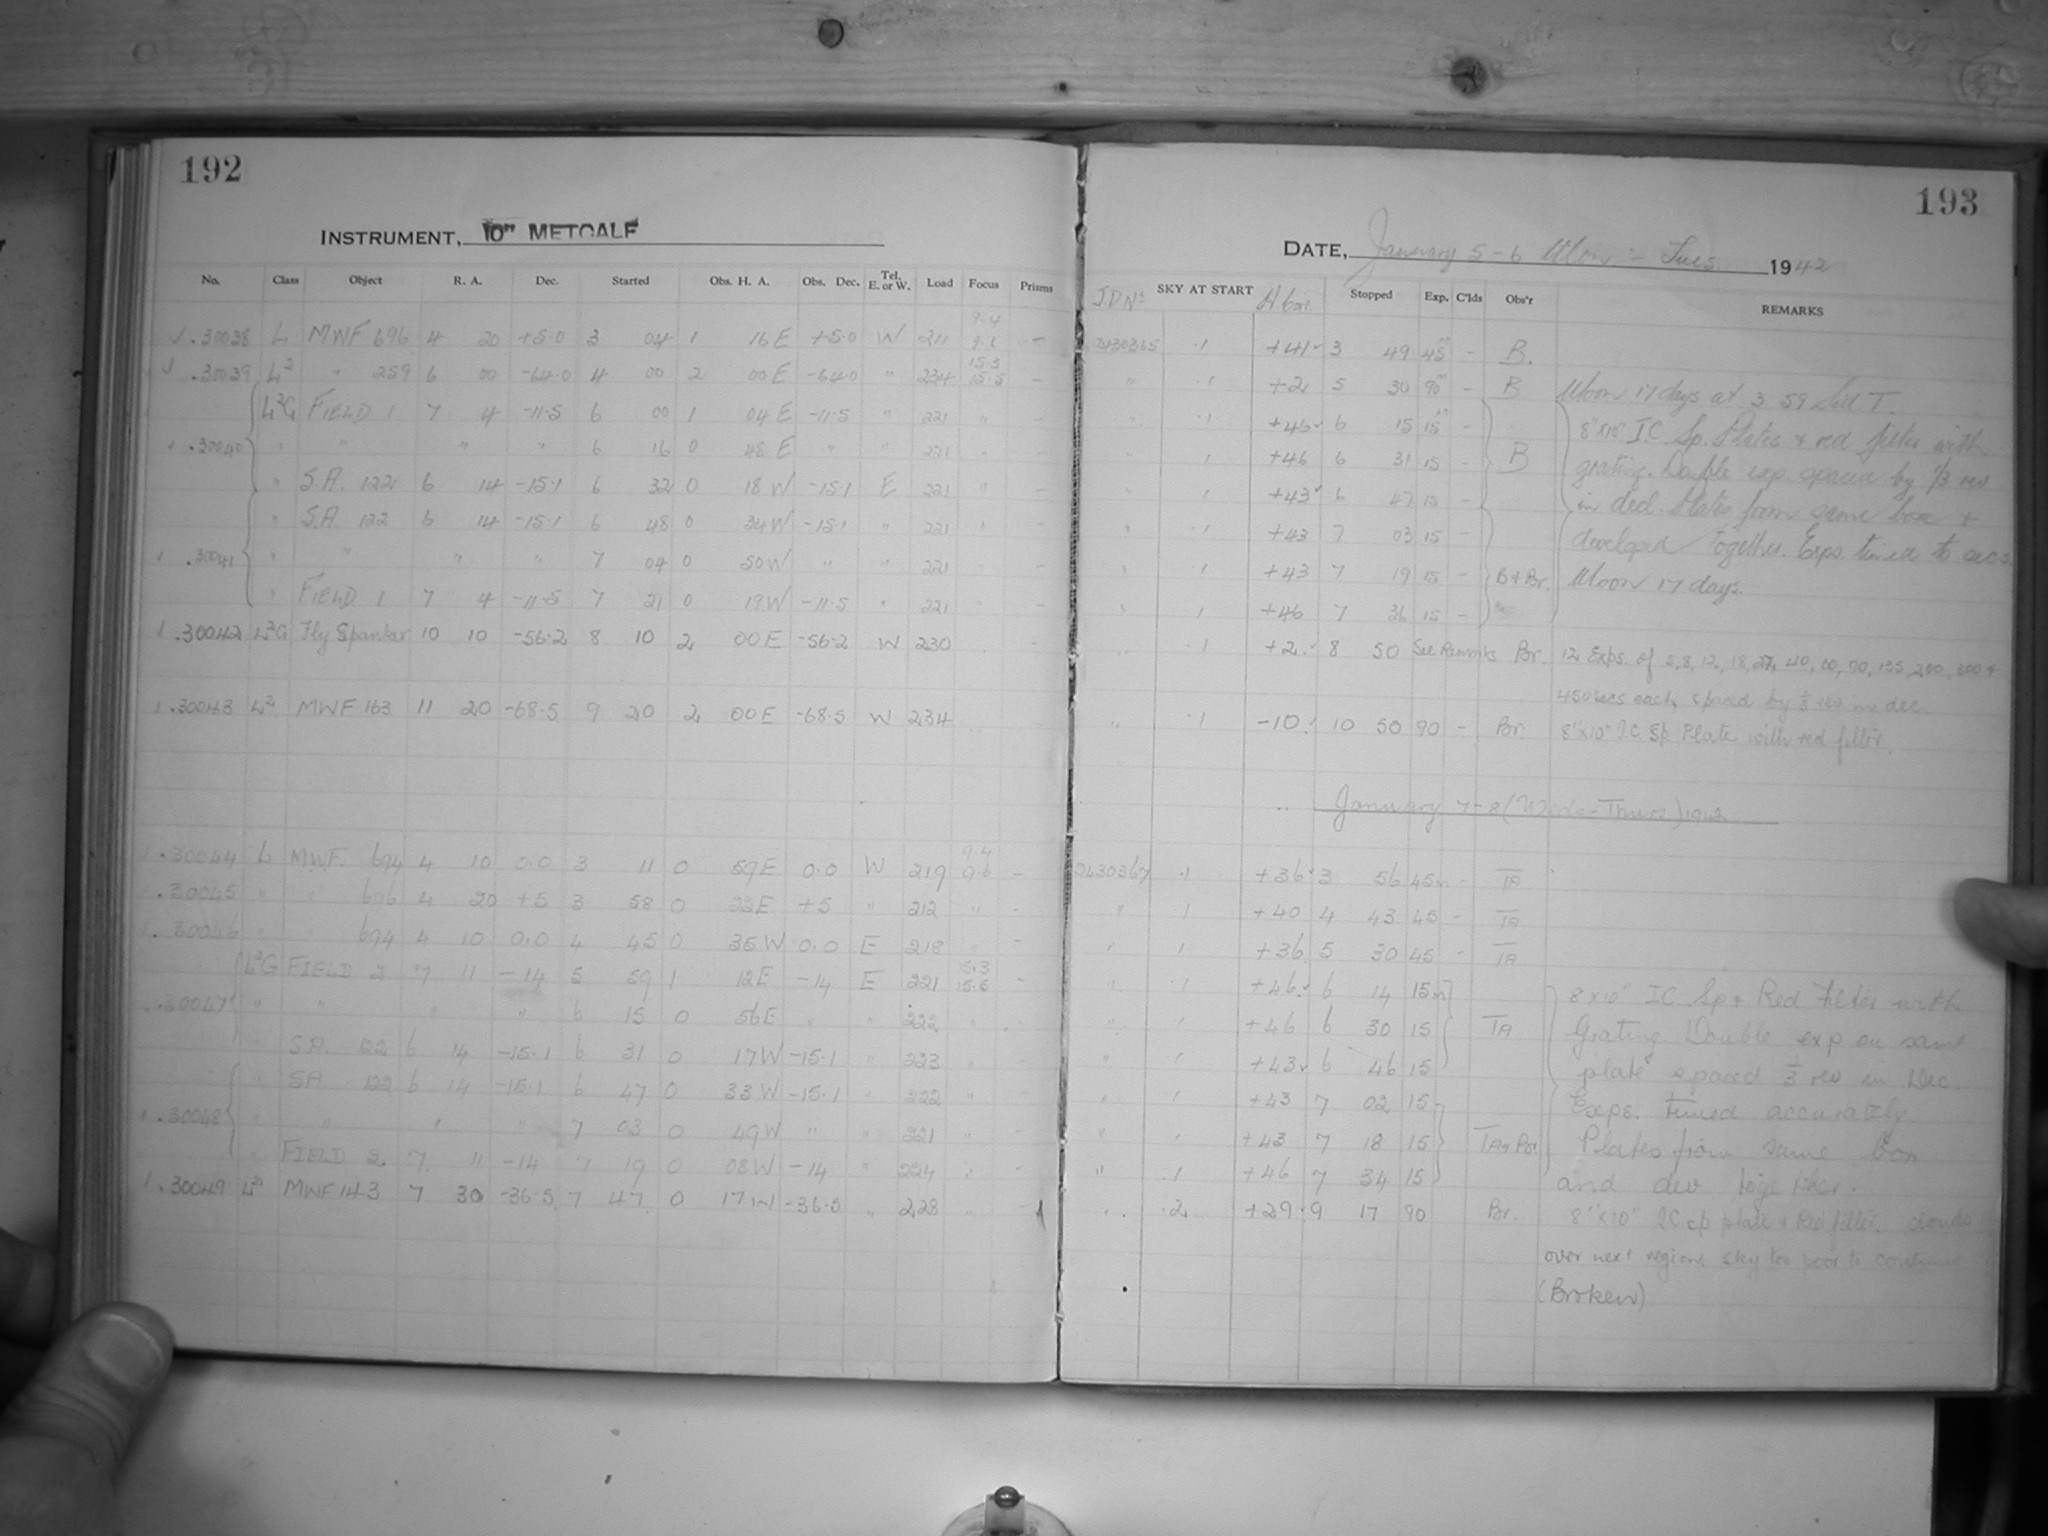 192
INSTRUMENT, 10" METCALF
No. Class Object R. A. Dec. Started Obs. H. A. Obs. Dec. Tel. E. or W. Load Focus Prisms
.30038 L MWF 696 4 20 +5.0 3 04 1 16 E +5.0 W 211 9.4 –
.30039 L2 " 259 6 00 -64.0 4 00 2 00 E -64.0 " 234 15.3 15.5 –
L2G FIELD 1 7 4 -11.5 6 00 1 04 E -11.5 " 221 " –
.30040 " " " " 6 16 0 48 E " " 221 " –
" S.A. 122 6 14 -15.1 6 32 0 18 W -15.1 E 221 " –
" S.A 122 6 14 -15.1 6 48 0 34 W -15.1 " 221 " –
.30041 " " " " 7 04 0 50 W " " 221 " –
" FIELD 1 7 4 -11.5 7 21 0 19 W -11.5 " 221 " –
.30042 L2G Fly Spanker 10 10 -56.2 8 10 2 00 E -56.2 W 230
.30043 L2 MWF 163 11 20 -68.5 9 20 2 00 E -68.5 W 234
.30044 L MWF. 694 4 10 0.0 3 11 0 59 E 0.0 W 219 9.4 9.6 –
.30045 " " 696 4 20 +5 3 58 0 22 E +5 " 212 " –
.30046 " " 694 4 10 0.0 4 45 0 35 W 0.0 E 218 " –
L2G FIELD 2 7 11 -14 5 59 1 12 E -14 E 221 15.3 15.6 –
.30047 " " " " 6 15 0 56 E " " 222 "
" S.A. 122 6 14 -15.1 6 31 0 17 W -15.1 " 223 "
" SA 122 6 14 -15.1 6 47 0 33 W -15.1 " 222 " –
.30048 " " " " 7 03 0 49 W " " 221 " –
FIELD 2 7 11 -14 7 19 0 08 W -14 " 224 " –
.30049 L2 MWF 143 7 30 -36.5 7 47 0 17 W -36.5 " 228 " –
193
DATE, January 5-6 Mon - Tues. 1942
J.D.No SKY AT START Stopped Exp. C'lds Obs'r REMARKS
2430365 .1 +41 3 49 45m – B.
" .1 +2 5 30 90m – B Moon 17 days at 3 59 Sid T.
" .1 +46 6 15 15m – 8"x10" I.C. Sp. Plates + red filter with
" 1 +46 6 31 15 – B grating. Double exp. spaced by 1/3 rev
" 1 +43 6 47 15 – in decl. Plates from same box +
" .1 +43 7 03 15 – developed together. Exps. timed to secs.
" .1 +43 7 19 15 – B & Br. Moon 17 days.
" .1 +46 7 36 15 – "
" .1 +2 8 50 See Remarks Br. 12 Exps. of 5, 8, 12, 18, 27, 40, 60, 90, 135, 200, 300 &
450 secs each, spaced by 1/3 rev in dec.
" .1 -10 10 50 90 – Br. 8"x10" I.C. Sp. Plate with red filter.
January 7-8 (Weds-Thurs) 1942
2430367 .1 +36 3 56 45m – TA
" 1 +40 4 43 45 – TA
" 1 +36 5 30 45 – TA
" .1 +46 6 14 15m 8x10" IC Sp + Red Filter with
" " +46 6 30 15 TA Grating. Double exp on same
" " +43 6 46 15 plate spaced 1/3 rev in Dec.
" " +43 7 02 15 Exps. timed accurately.
" " +43 7 18 15 TA & Br. Plates from same box
" .1 +46 7 34 15 and dev together.
" .2 +29 9 17 90 Br. 8"x10" IC sp plate & Red filter. clouds
over next regions sky too poor to continue
(Broken)